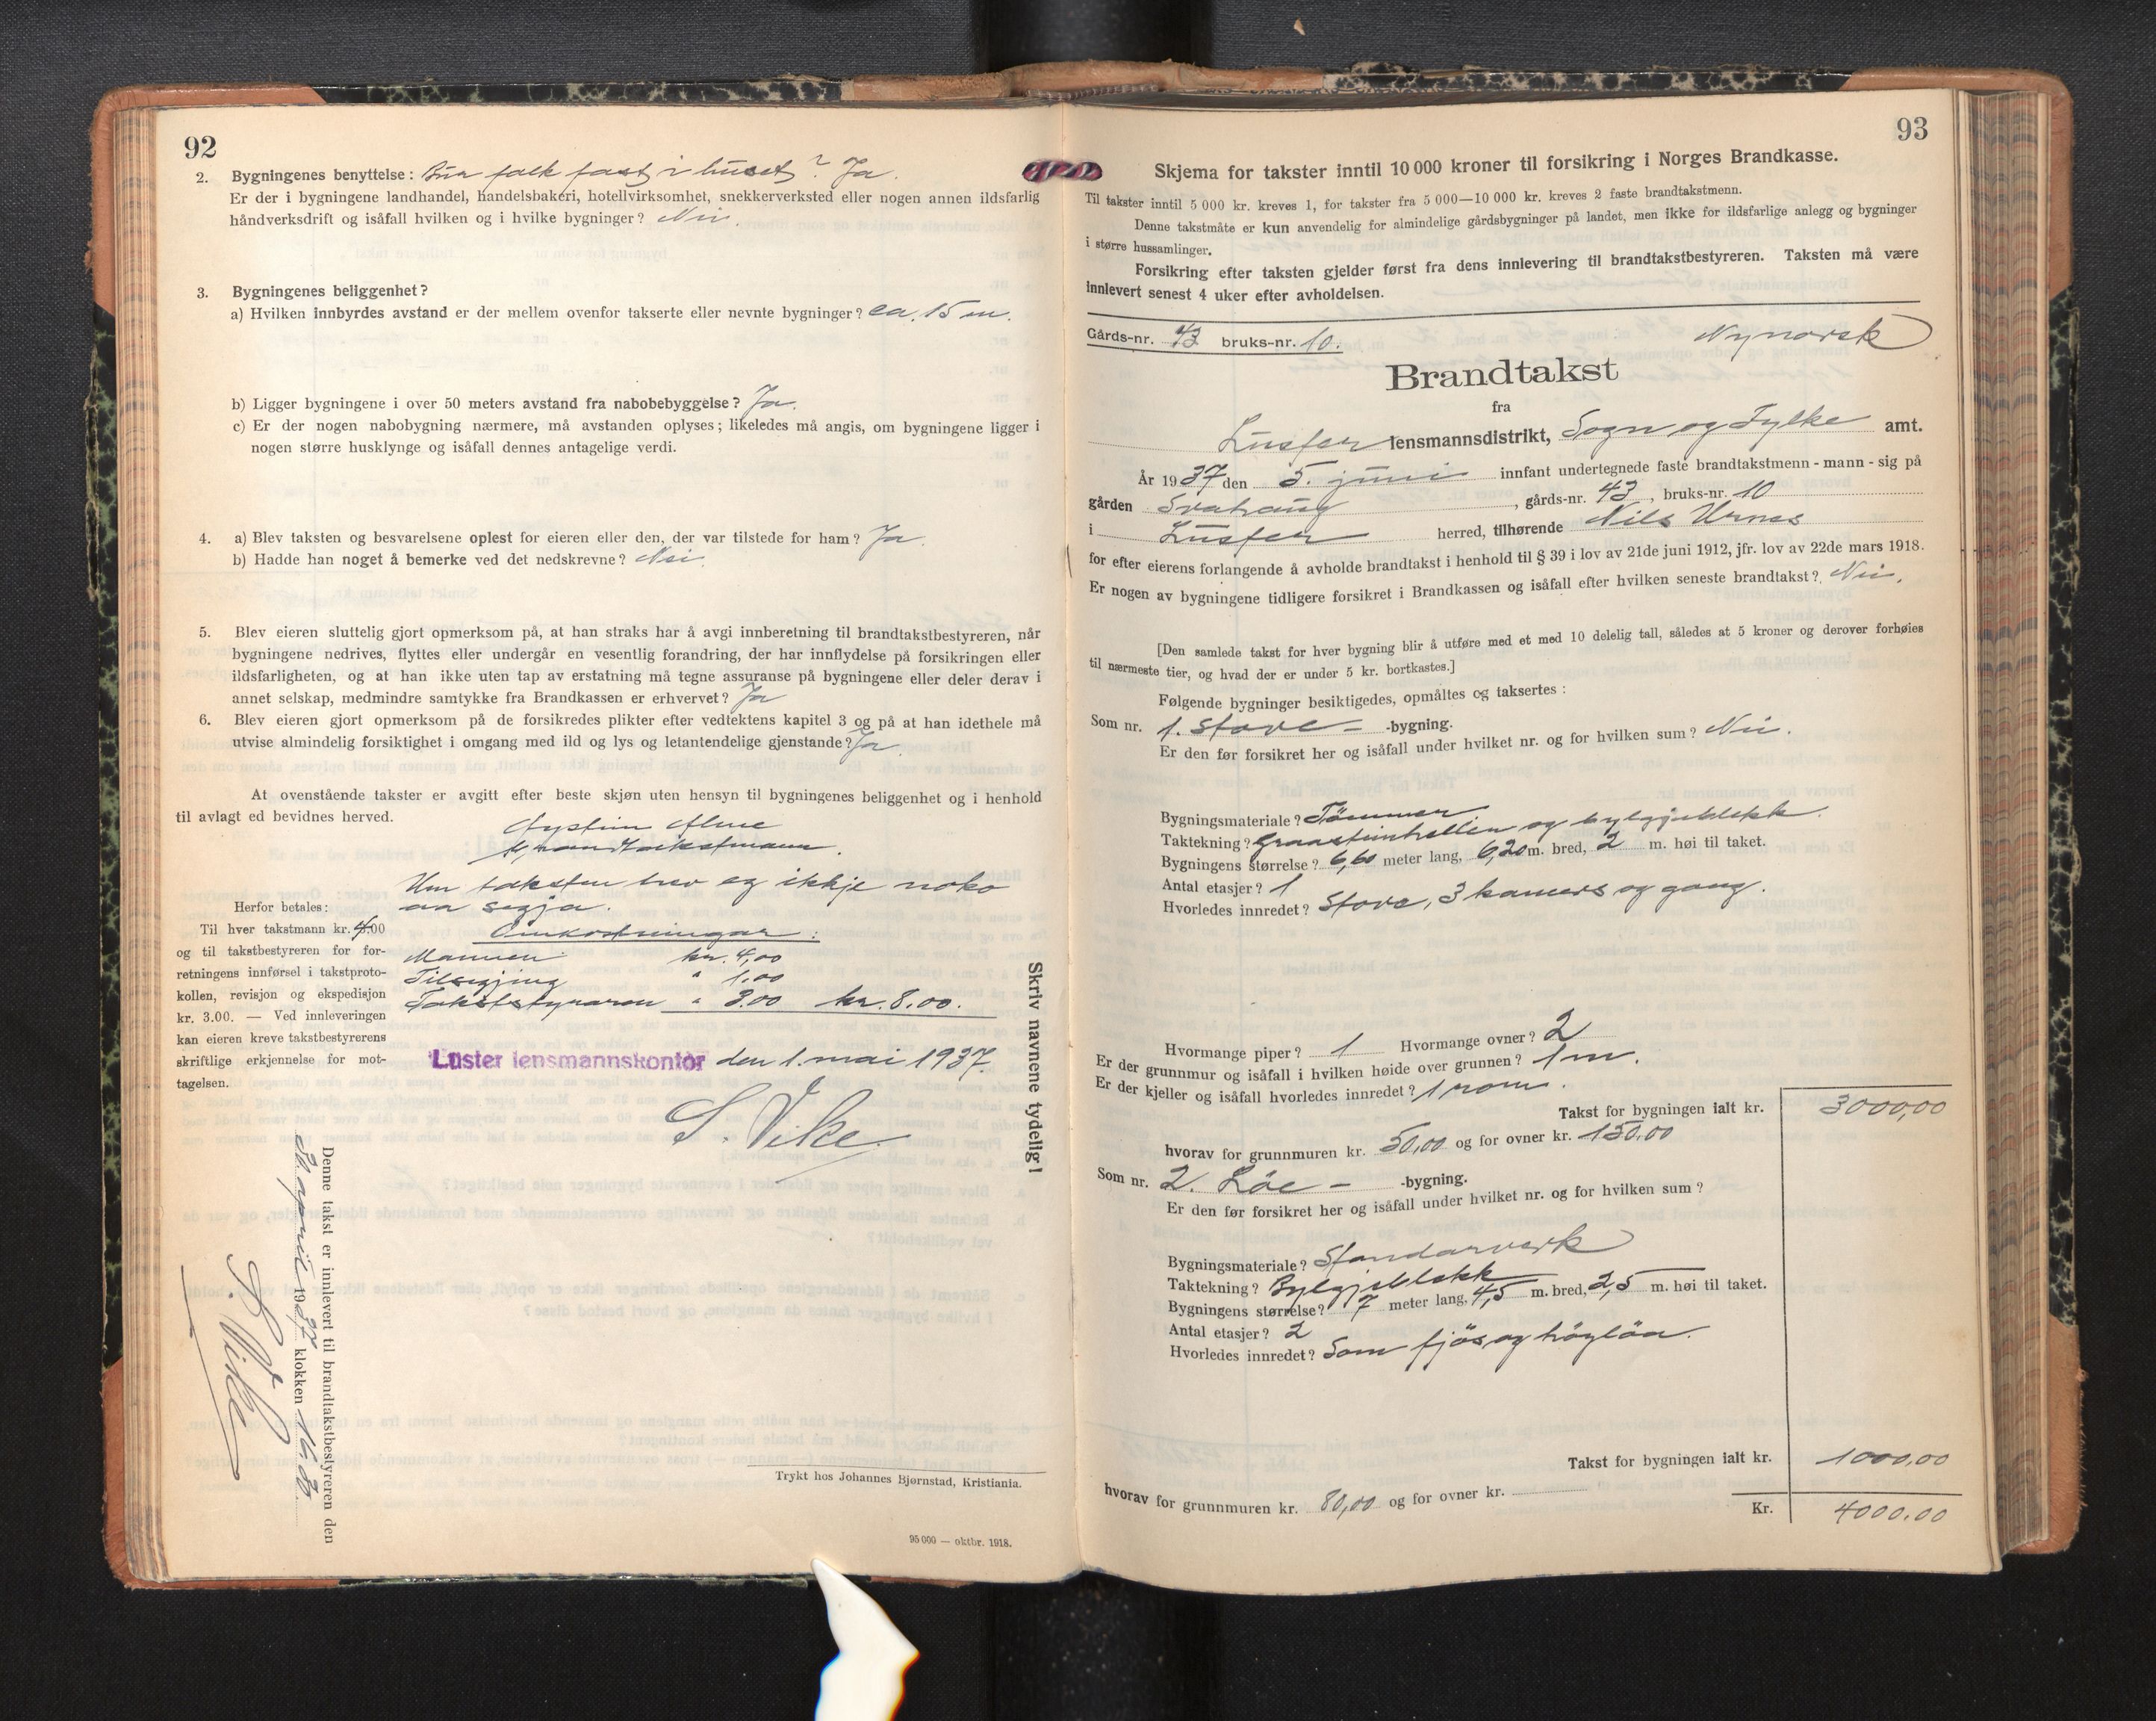 92
2. Bygningenes benyttelse: Bur folk fast i huset? Ja.
Er der i bygningene landhandel, handelsbakeri, hotellvirksomhet, snekkerverksted eller nogen annen ildsfarlig
håndverksdrift og isåfall hvilken og i hvilke bygninger? Nei.
3. Bygningenes beliggenhet?
a) Hvilken innbyrdes avstand er der mellem ovenfor takserte eller nevnte bygninger? ca. 15 m.
b) Ligger bygningene i over 50 meters avstand fra nabobebyggelse? Ja.
c) Er der nogen nabobygning nærmere, må avstanden oplyses; likeledes må angis, om bygningene ligger i
nogen større husklynge og isåfall dennes antagelige verdi.
4. a) Blev taksten og besvarelsene oplest for eieren eller den, der var tilstede for ham? Ja.
b) Hadde han noget å bemerke ved det nedskrevne? Nei.
5. Blev eieren sluttelig gjort opmerksom på, at han straks har å avgi innberetning til brandtakstbestyreren, når
bygningene nedrives, flyttes eller undergår en vesentlig forandring, der har innflydelse på forsikringen eller
ildsfarligheten, og at han ikke uten tap av erstatning må tegne assuranse på bygningene eller deler derav i
annet selskap, medmindre samtykke fra Brandkassen er erhvervet? Ja
6. Blev eieren gjort opmerksom på de forsikredes plikter efter vedtektens kapitel 3 og på at han idethele må
utvise almindelig forsiktighet i omgang med ild og lys og letantendelige gjenstande? Ja.
At ovenstående takster er avgitt efter beste skjøn uten hensyn til bygningenes beliggenhet og i henhold
til avlagt ed bevidnes herved.
brandtakstmann.
Um taksten hev eg ikkje noko
aa segja.
Herfor betales:
Til hver takstmann kr. 4.00
og til takstbestyreren for for-
retningens innførsel i takstproto-
kollen, revisjon og ekspedisjon
kr. 3.00. — Ved innleveringen
kan eieren kreve takstbestyrerens
skriftlige erkjennelse for mot-
tagelsen.
Omkostningar:
Mannen kr. 4,00
Tilsegjing " 1.00
Takststyraren " 3.00 kr. 8.00.
Luster lensmannskontor den 1. mai 1937.
S. Vike
Skriv navnene tydelig!
Denne takst er innlevert til brandtakstbestyreren den
30 april 1937 klokken 16.30.
S. Vike
Trykt hos Johannes Bjørnstad, Kristiania.
95 000 — oktbr. 1918.
93
Skjema for takster inntil 10 000 kroner til forsikring i Norges Brandkasse.
Til takster inntil 5 000 kr. kreves 1, for takster fra 5 000—10 000 kr. kreves 2 faste brandtakstmenn.
Denne takstmåte er kun anvendelig for almindelige gårdsbygninger på landet, men ikke for ildsfarlige anlegg og bygninger
i større hussamlinger.
Forsikring efter taksten gjelder først fra dens innlevering til brandtakstbestyreren. Taksten må være
innlevert senest 4 uker efter avholdelsen.
Gårds-nr. 43 bruks-nr. 10.
Nynorsk
Brandtakst
fra
Luster lensmannsdistrikt, Sogn og Fylke amt.
År 1937 den 5. juni innfant undertegnede faste brandtakstmenn - mann - sig på
gården , gårds-nr. 43, bruks-nr. 10
i Luster herred, tilhørende Nils Urnes
for efter eierens forlangende å avholde brandtakst i henhold til § 39 i lov av 21de juni 1912, jfr. lov av 22de mars 1918.
Er nogen av bygningene tidligere forsikret i Brandkassen og isåfall efter hvilken seneste brandtakst? Nei.
[Den samlede takst for hver bygning blir å utføre med et med 10 delelig tall, således at 5 kroner og derover forhøies
til nærmeste tier, og hvad der er under 5 kr. bortkastes.]
Følgende bygninger besiktigedes, opmåltes og taksertes:
Som nr. 1. Stove- -bygning.
Er den før forsikret her og isåfall under hvilket nr. og for hvilken sum? Nei.
Bygningsmateriale? Tömmer
Taktekning? Graasteinhellen og bylgjeblekk.
Bygningens størrelse? 6,60 meter lang, 6,20 m. bred, 2 m. høi til taket.
Antal etasjer? 1
Hvorledes innredet? Stove, 3 kamers og gang.
Hvormange piper? 1 Hvormange ovner? 2
Er der grunnmur og isåfall i hvilken høide over grunnen? 1 m.
Er der kjeller og isåfall hvorledes innredet? 1 rom.
Takst for bygningen ialt kr. 3000,00
hvorav for grunnmuren kr. 50,00 og for ovner kr. 150,00
Som nr. 2. Löe- -bygning.
Er den før forsikret her og isåfall under hvilket nr. og for hvilken sum?
Bygningsmateriale? Standarverk
Taktekning? Bylgjeblekk
Bygningens størrelse? 7 meter lang, 4,5 m. bred, 2,5 m. høi til taket.
Antal etasjer? 2
Hvorledes innredet? Som fjös og höylöa.
Takst for bygningen ialt kr. 1000,00
hvorav for grunnmuren kr. 80,00 og for ovner kr.
Kr. 4000.00